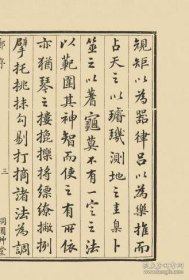 規矩以為器律呂以為樂推而
占天之以璿璣測地之圭臬卜
筮之以蓍龜莫不有一定之法
以範圍其神智而使之有所依
亦猶琴之摟捋縹繚撇
擘托挑抹勾剔打摘諸法為調
序
三